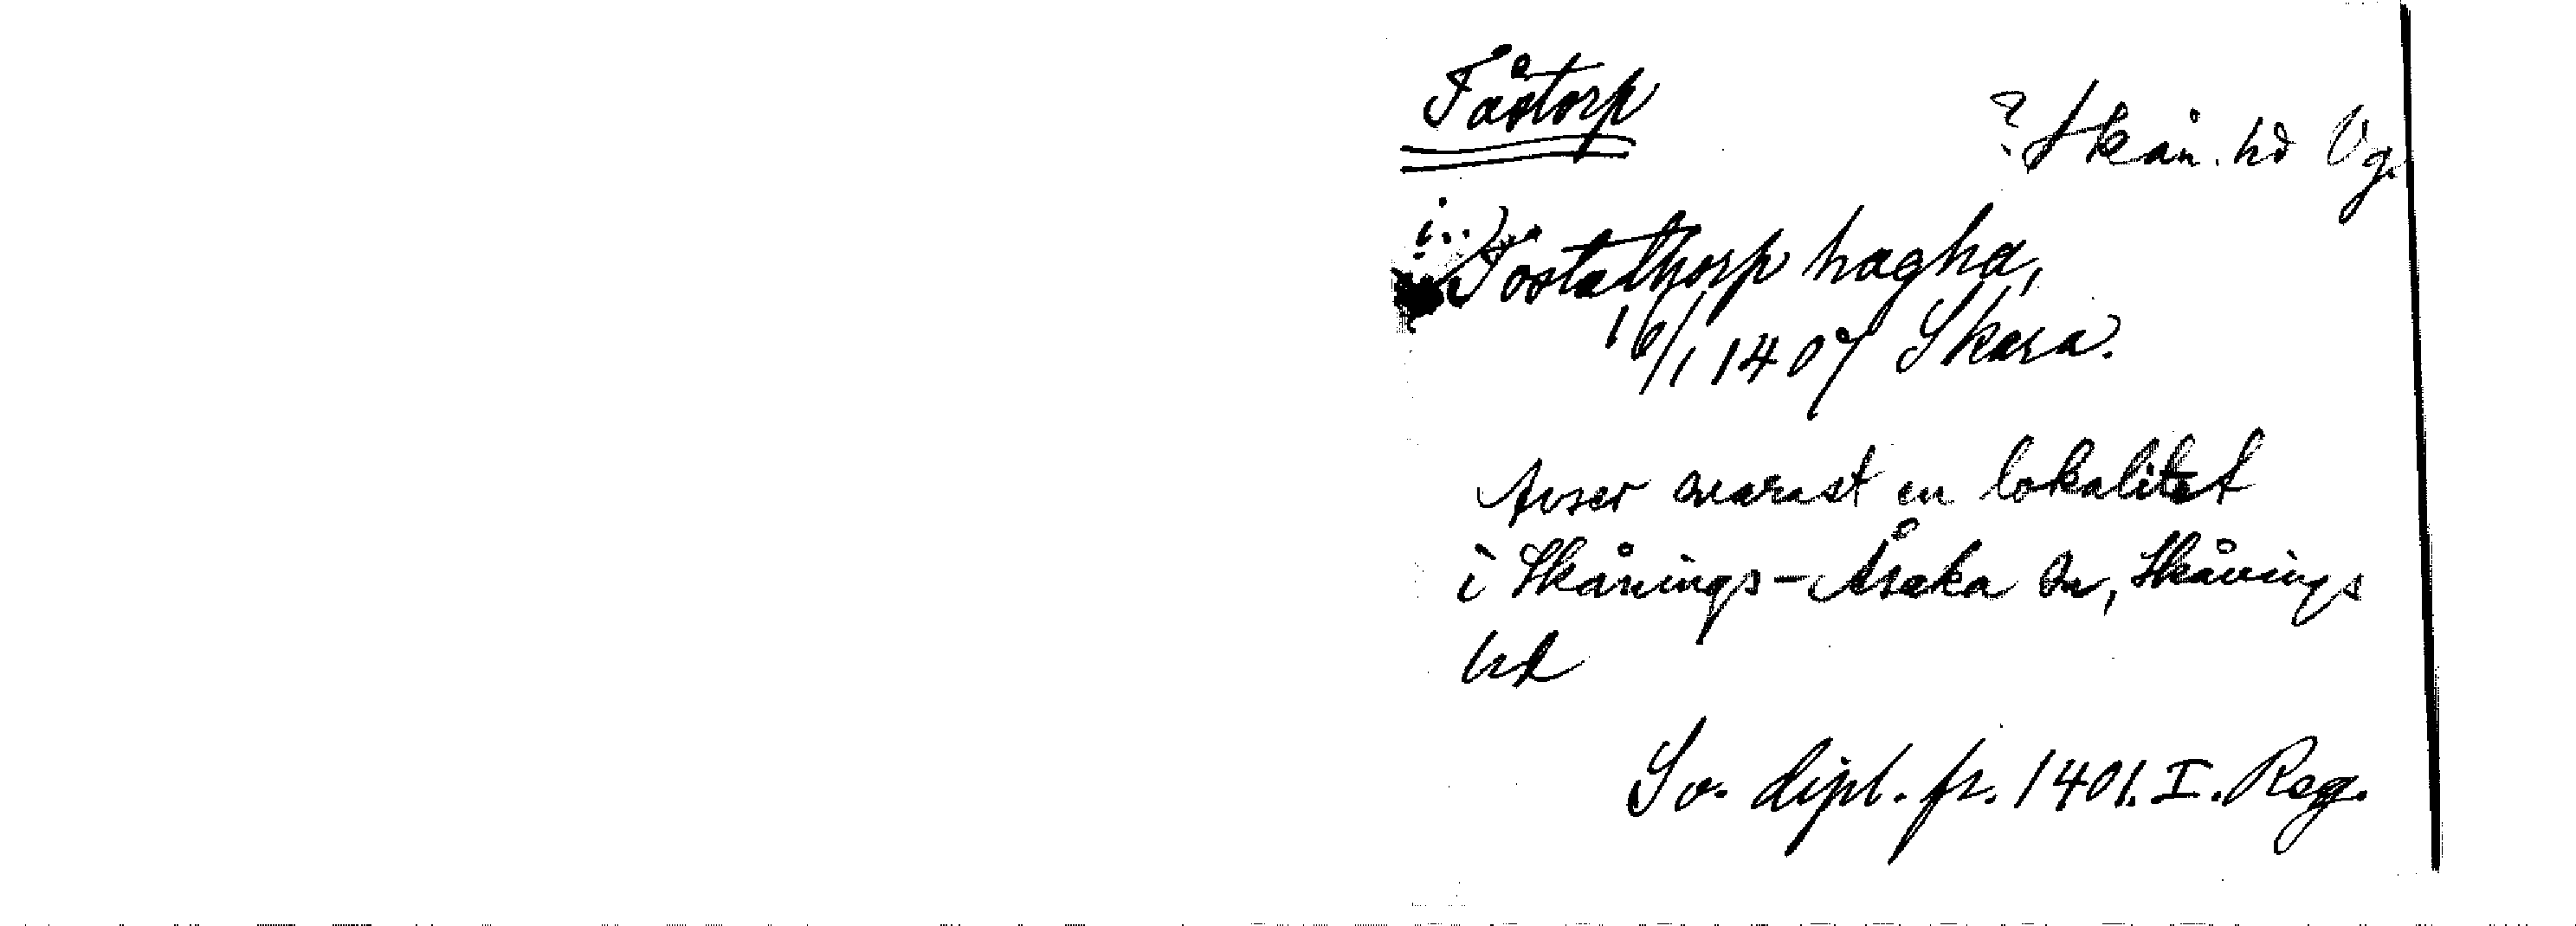 Tåstorp
? Skån. hd Vg.
i... Tostathorp hagha,
16/1 1407 Skara.
Avser snarast en lokalitet
i Skånings-Åsaka sn, Skånings
hd
Sv. dipl. fr. 1401. I. Reg.